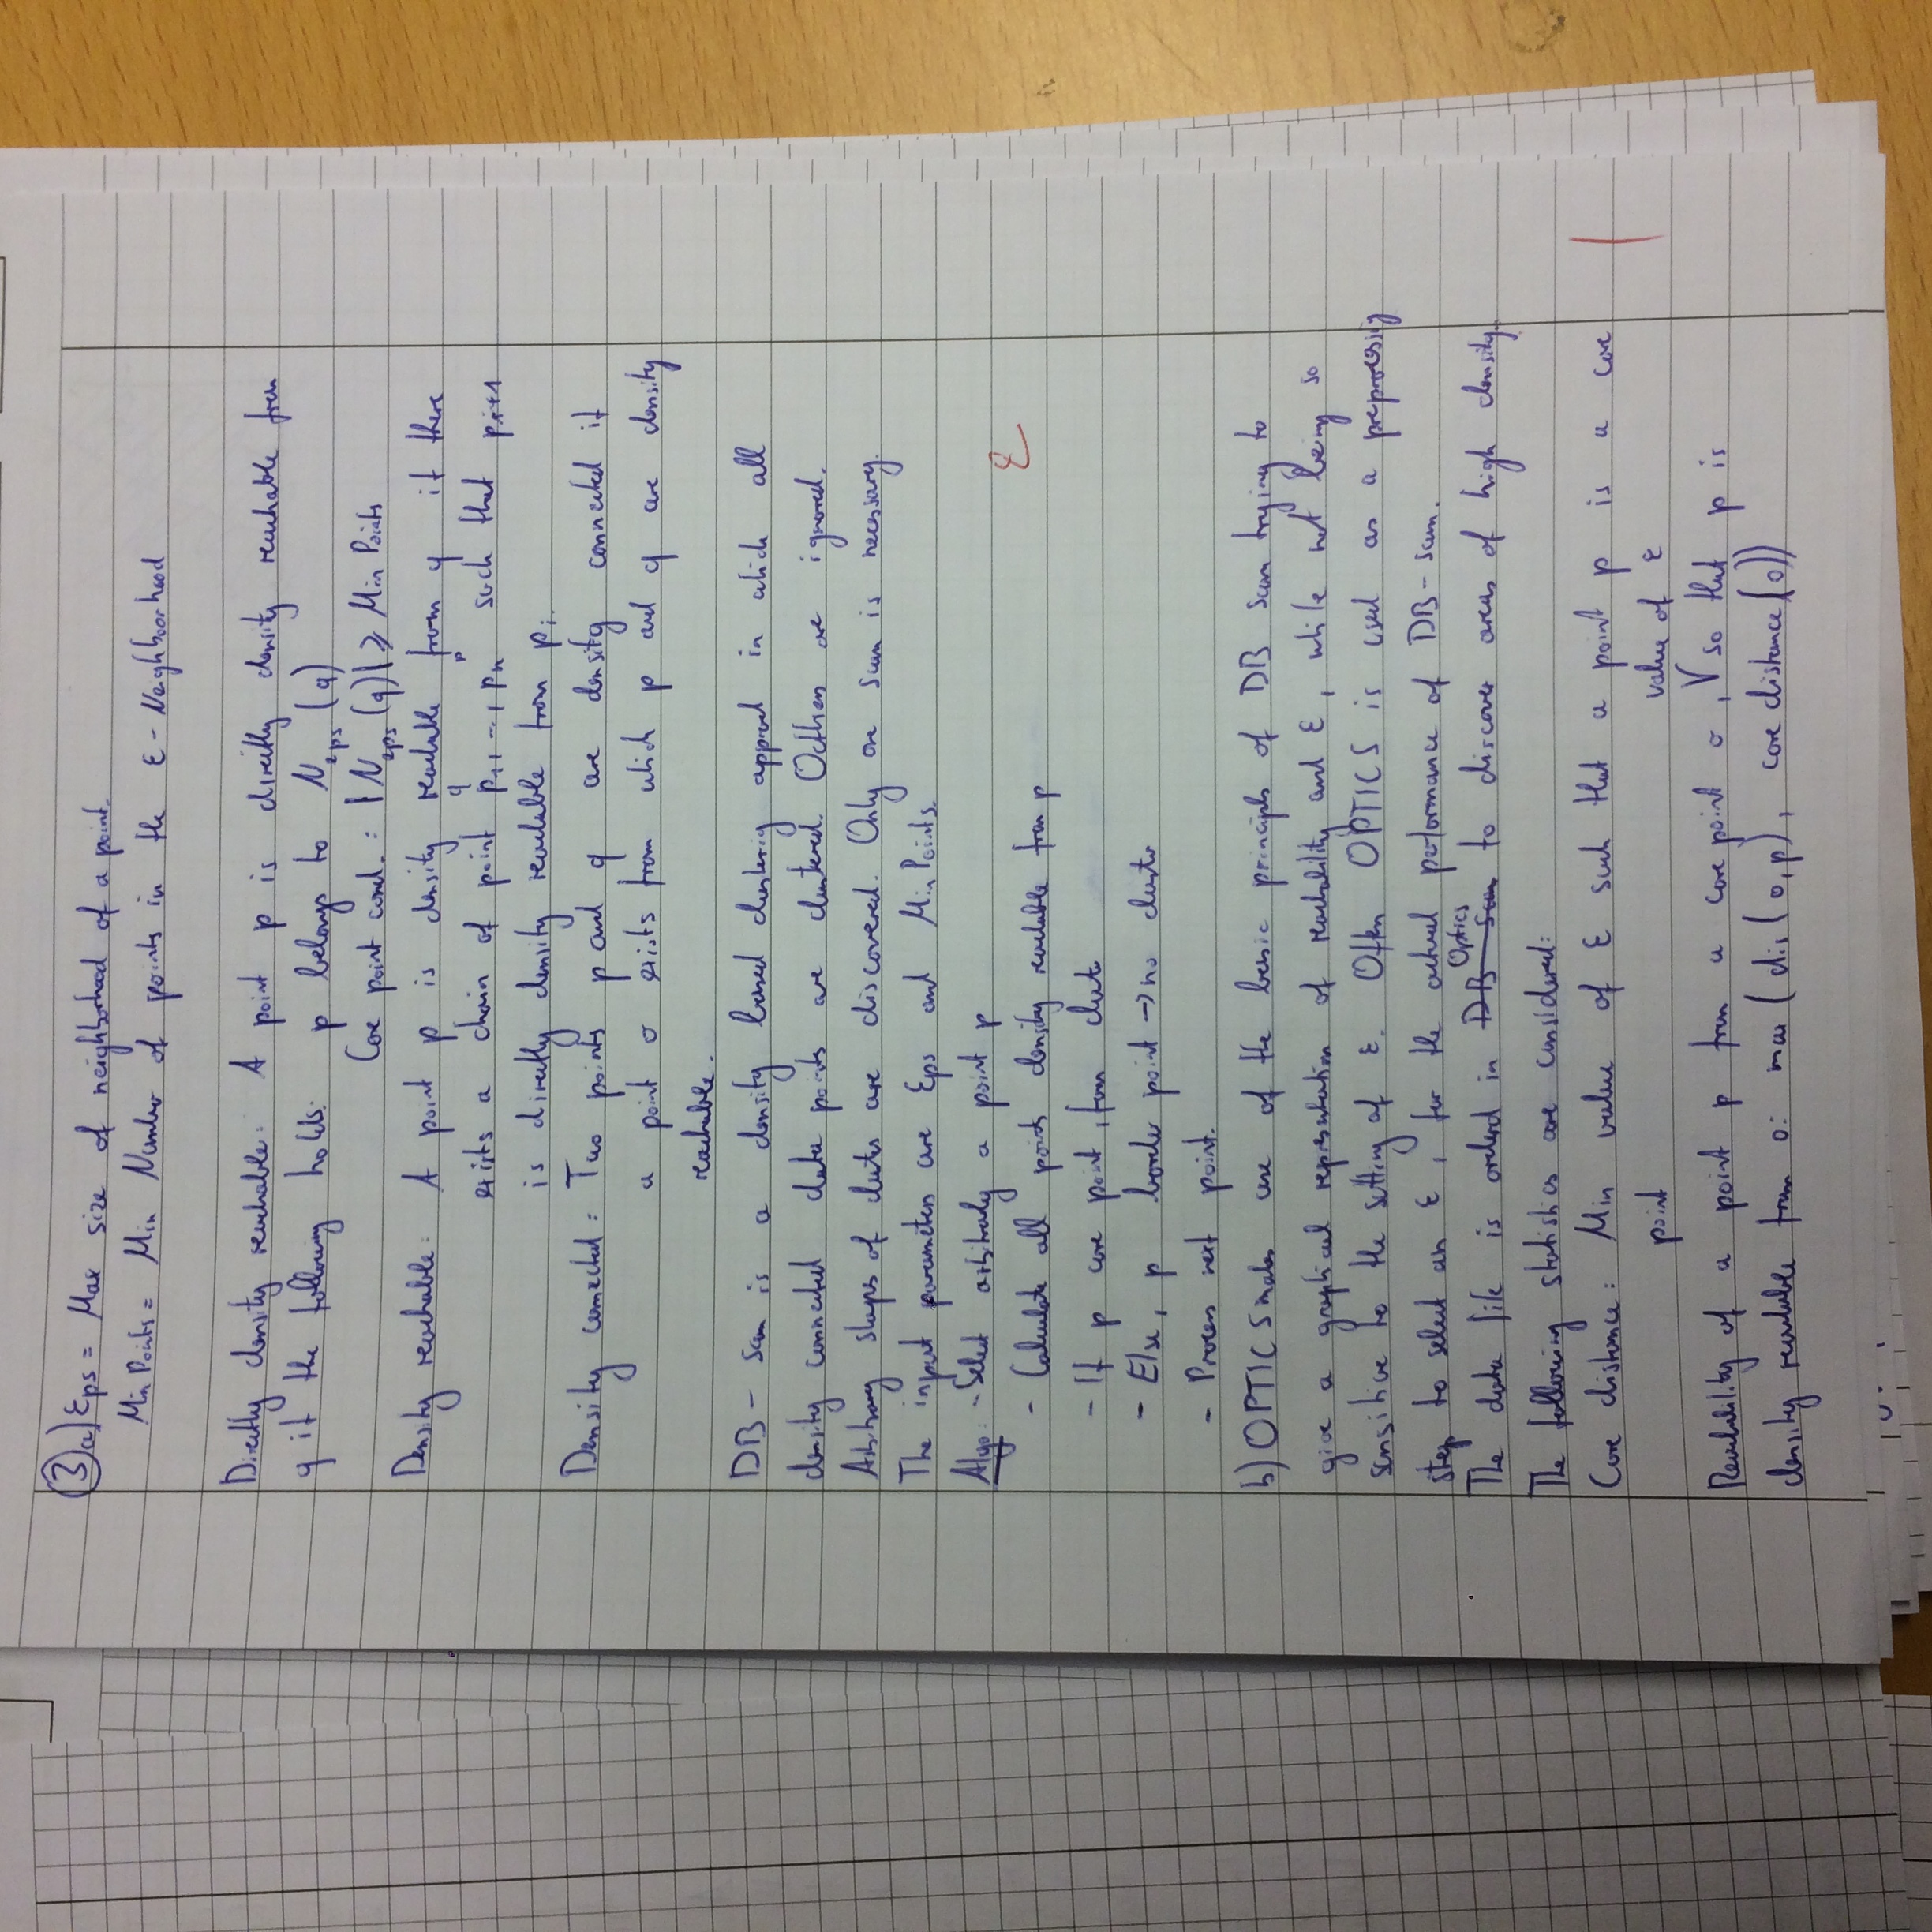 ③ a) Eps = Max size of neighborhood of a point.
Min Points = Min Number of points in the ε - Neighboorhood
Directly density reachable: A point p is directly density reachable from
q if the following holds: p belongs to N_eps (q)
Core point cond. : |N_eps (q)| ≥ Min Points
Density reachable: A point p is density reachable from q if there
q p
exists a chain of point p₁, ..., pₙ such that pᵢ₊₁
is directly density reachable from pᵢ.
Density connected: Two points p and q are density connected if
a point o exists from which p and q are density
reachable.
DB - Scan is a density based clusterig approch in which all
density connected data points are clustered. Outliers are ignored.
Arbitrary shapes of cluster are discovered. Only one scan is necessary.
The input parameters are Eps and Min Points.
Algo: - Select arbitrarly a point p
ε
- Calculate all points density reachable from p
- If p core point, form cluster
- Else, p border point → no cluster
- Process next point.
b) OPTICS makes use of the basic principle of DB Scan trying to
give a graphical representation of reachability and ε, while not being so
sensitive to the setting of ε. Often OPTICS is used as a preprocessing
step to select an ε, for the actual performance of DB - scan.
Optics
The data file is orderd in DB Scan to discover areas of high density.
The following statistics are considered:
Core distance: Min value of ε such that a point p is a core
point value of ε
Reachability of a point p from a core point o, V so that p is
density reachable from o: max (dis (o,p), core distance (o))